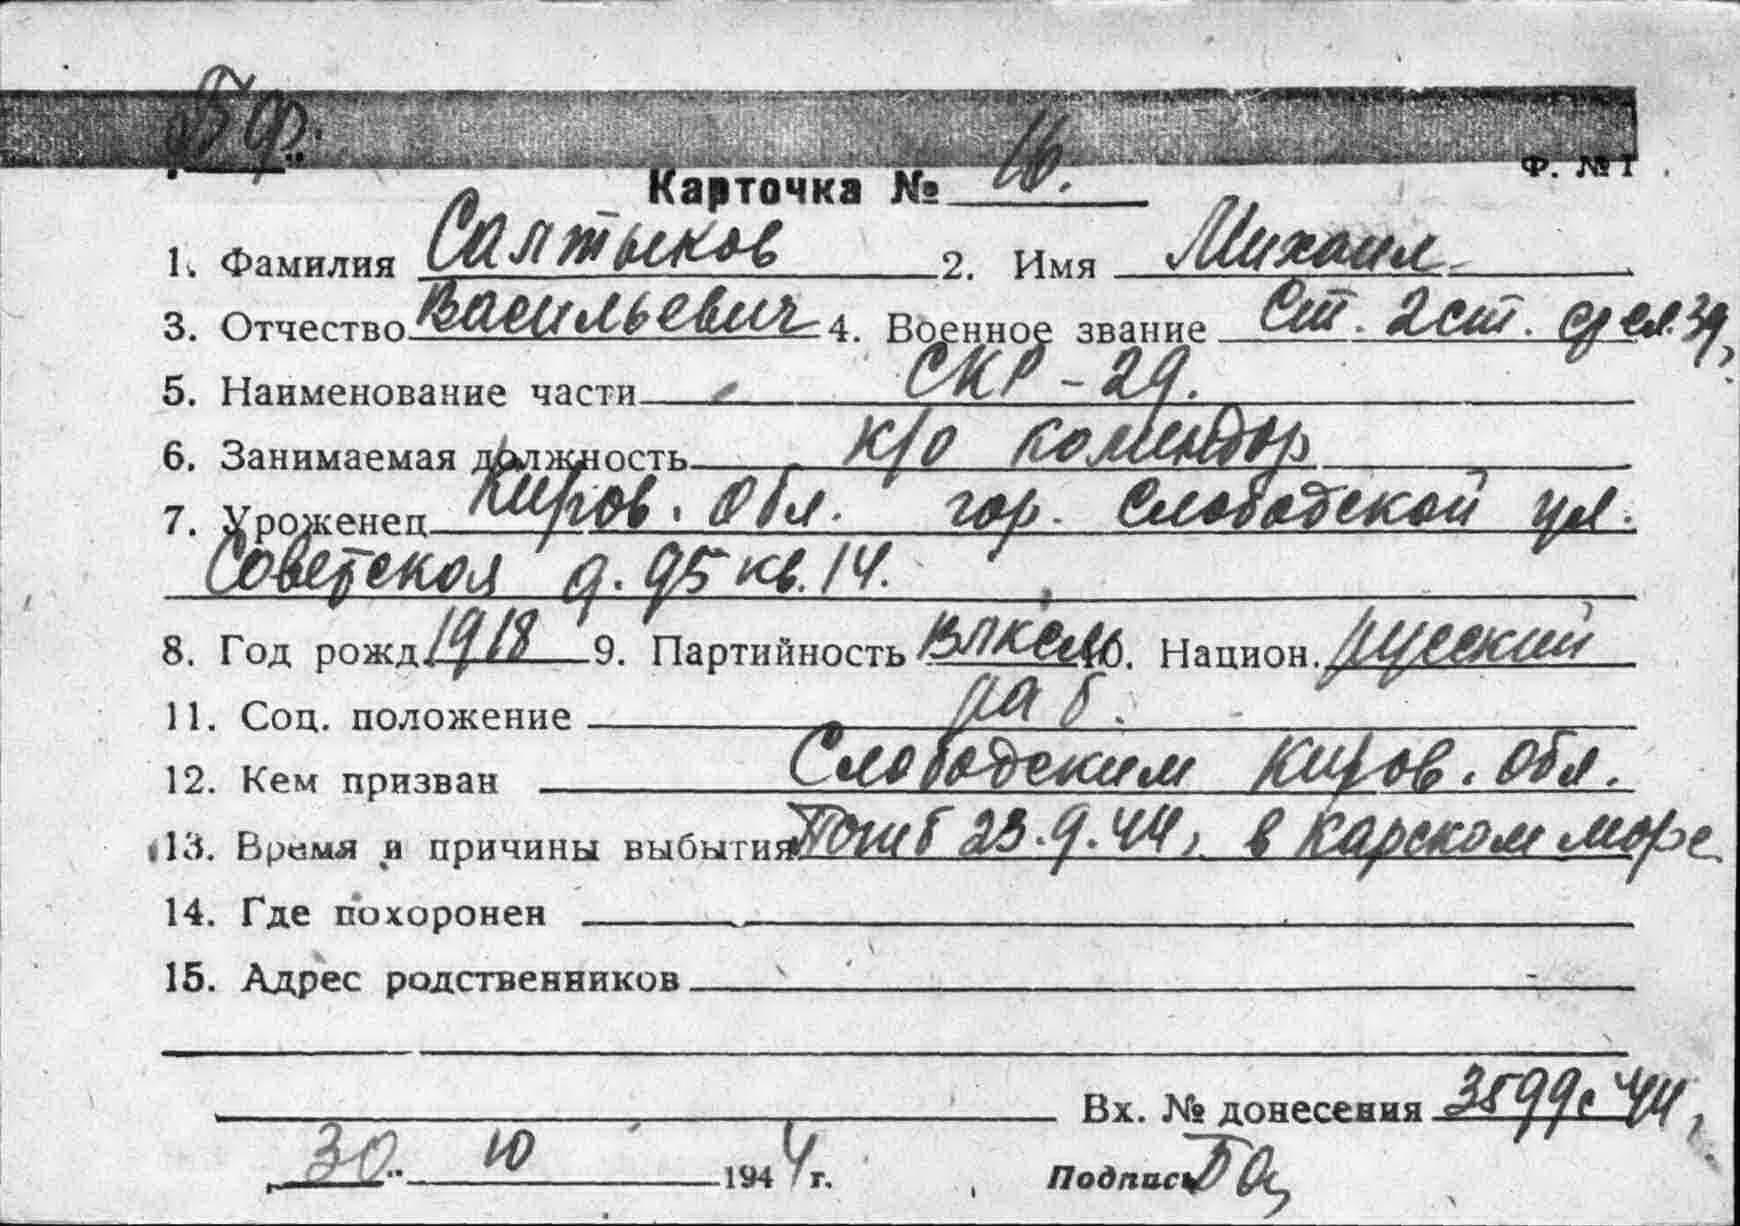 Бф.
Ф. № 1
Карточка № 16.
1. Фамилия Салтыков 2. Имя Михаил
3. Отчество Васильевич 4. Военное звание Ст. 2 ст.
5. Наименование части СКР-29.
6. Занимаемая должность к/о комендор
7. Уроженец Киров. обл. гор. Слободской ул.
Советская д. 95 кв. 14.
8. Год рожд. 1918 9. Партийность ВЛКСМ 10. Национ. русский
11. Соц. положение раб.
12. Кем призван Слободским Киров. обл.
13. Время и причины выбытия Погиб 23.9.44, в Карском море
14. Где похоронен
15. Адрес родственников
Вх. № донесения 3599с 44,
„30“ 10 1944 г. Подпись